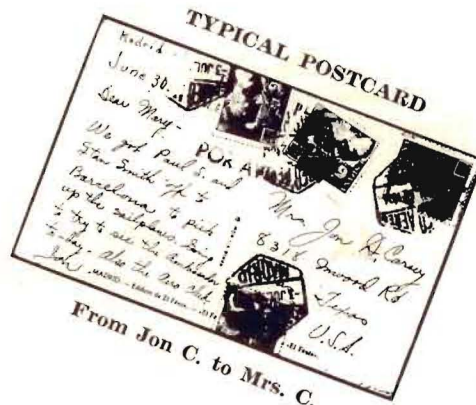 TYPICAL POSTCARD
Madrid
June 30
Dear Mary-
We got Paul S. and
Stan Smith off to
Barcelona to pick
up the sailplanes. Going
to try to see the
to day, also the aero club
Josh.
POR A
Mrs Jon D. Carsey
8318 Inwood Rd
Texas
U.S.A.
MADRID
From Jon C. to Mrs. C.